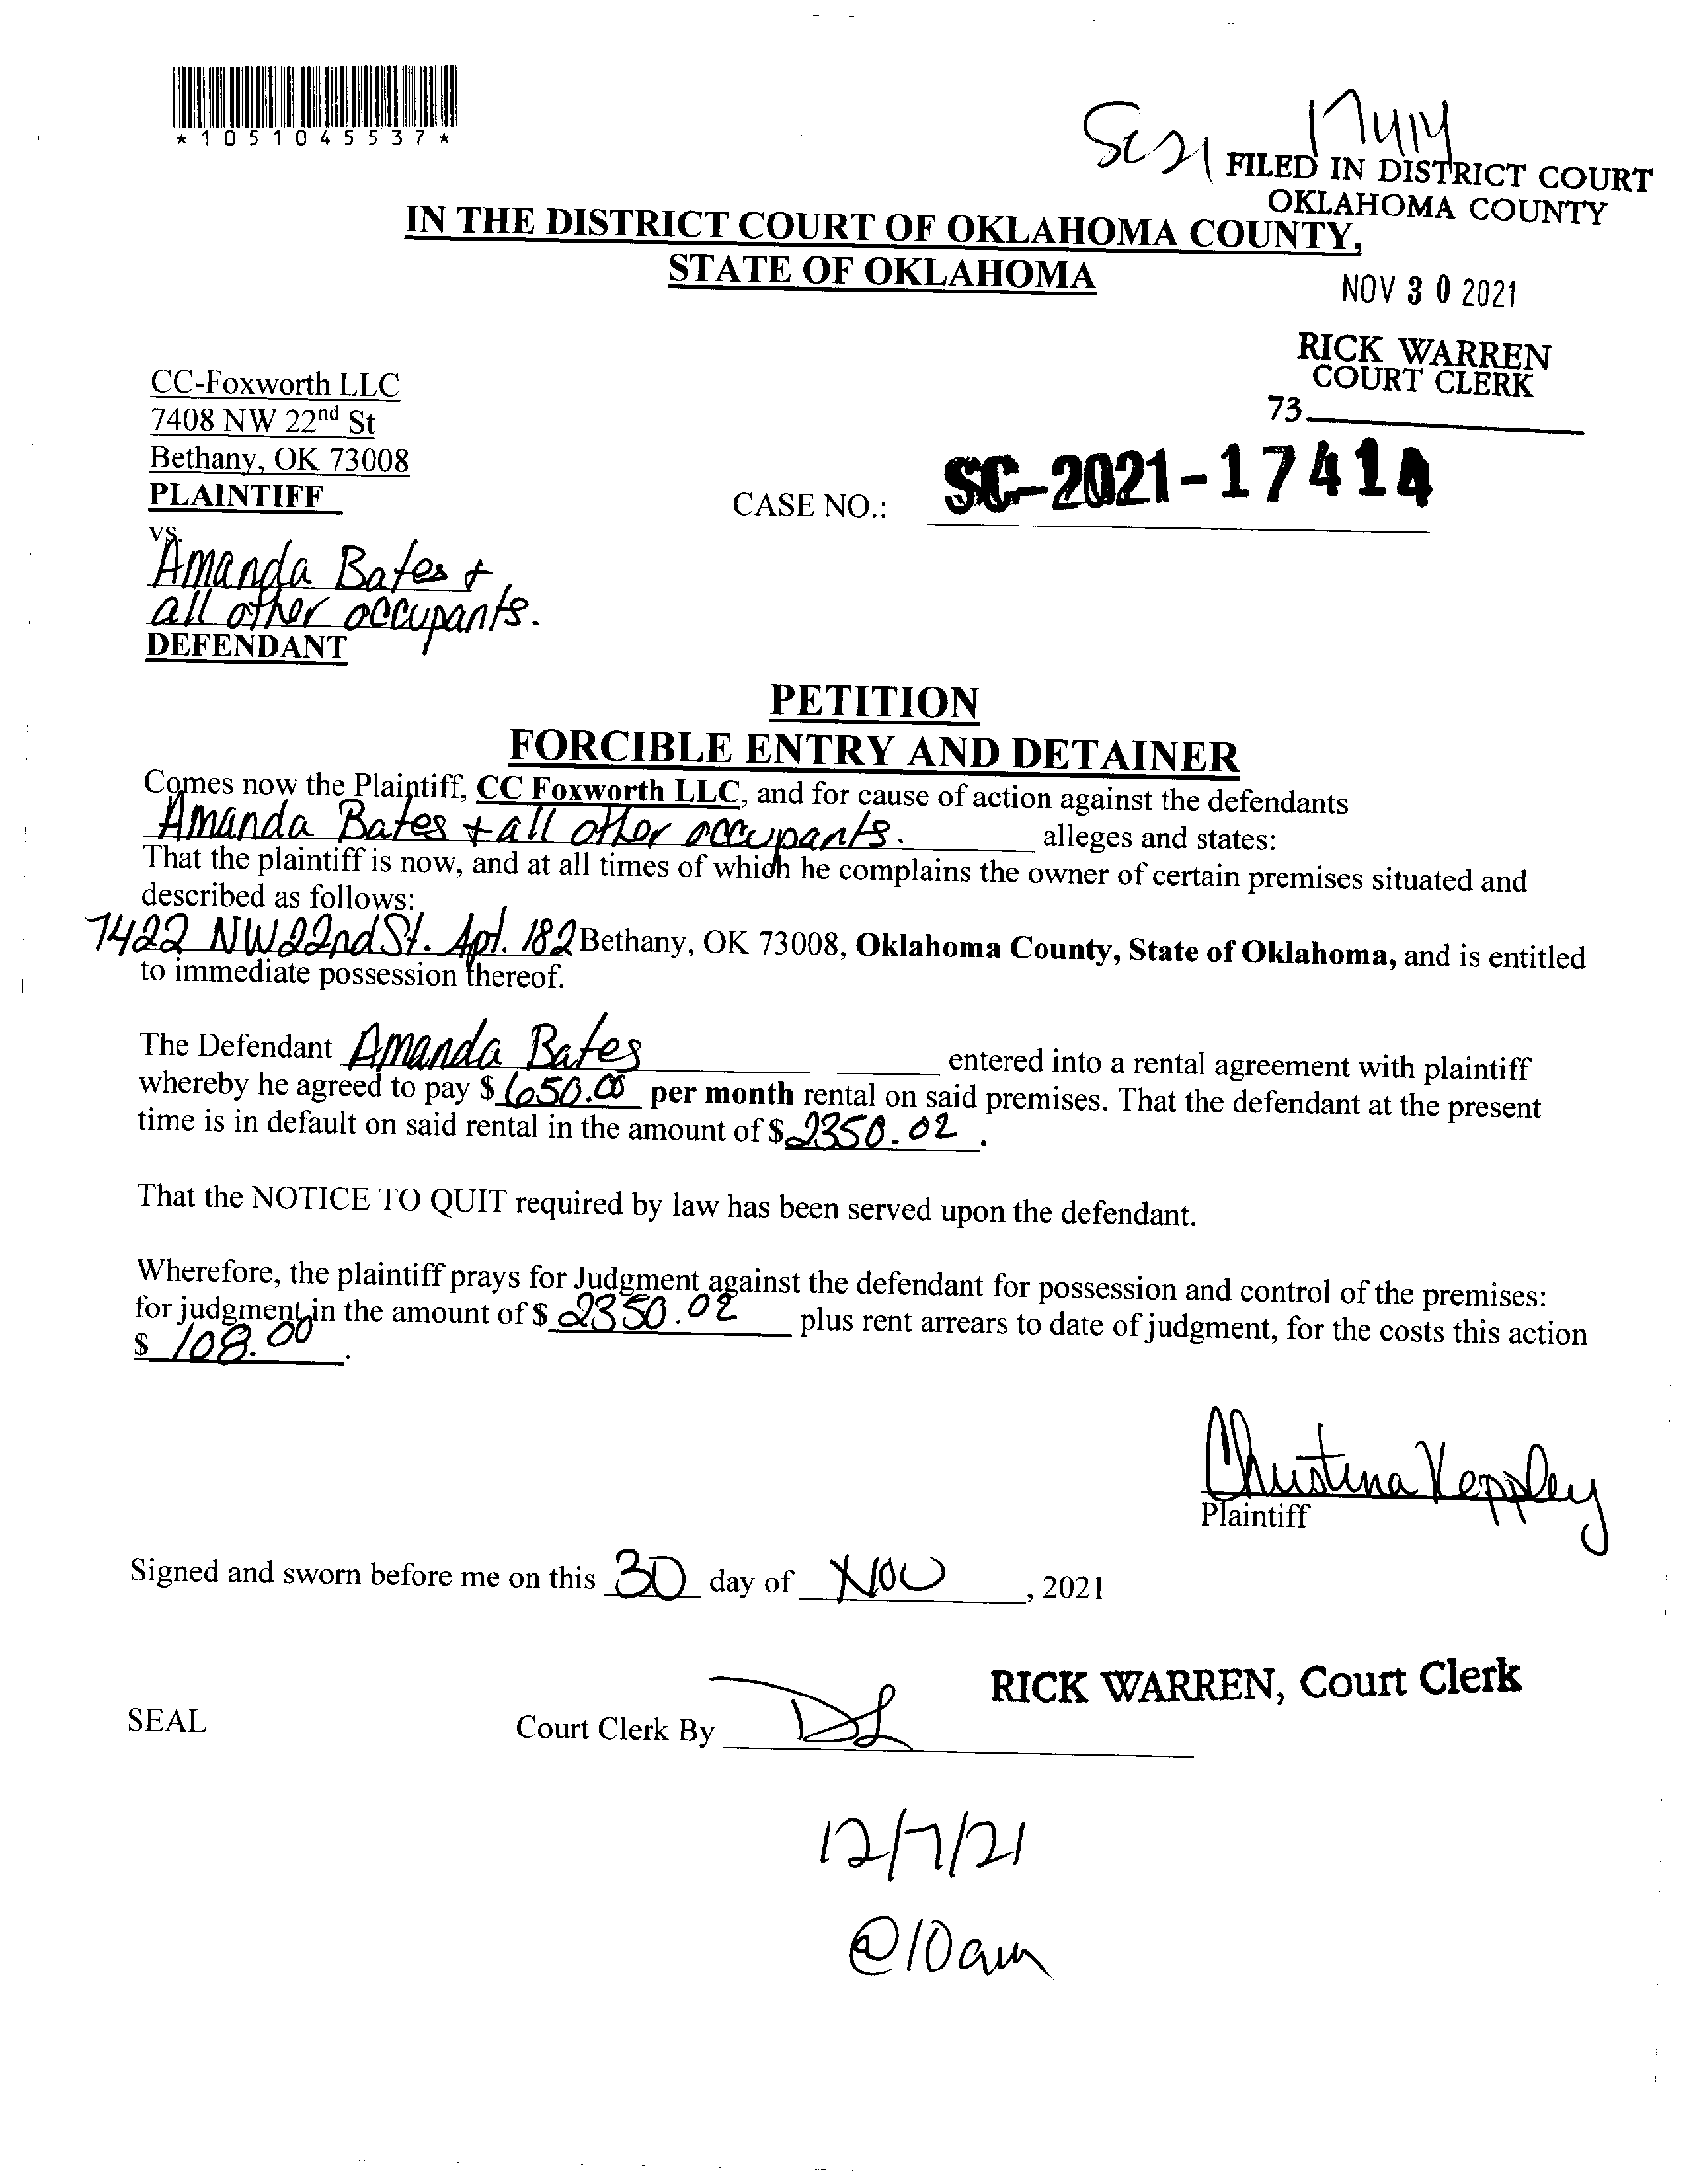 *1051045537*
SC21 17414
FILED IN DISTRICT COURT
OKLAHOMA COUNTY
IN THE DISTRICT COURT OF OKLAHOMA COUNTY,
STATE OF OKLAHOMA
NOV 30 2021
RICK WARREN
COURT CLERK
73
CC-Foxworth LLC
7408 NW 22nd St
Bethany, OK 73008
PLAINTIFF
CASE NO.: SC-2021-17414
vs.
Amanda Bates +
all other occupants.
DEFENDANT
PETITION
FORCIBLE ENTRY AND DETAINER
Comes now the Plaintiff, CC Foxworth LLC, and for cause of action against the defendants
Amanda Bates + all other occupants. alleges and states:
That the plaintiff is now, and at all times of which he complains the owner of certain premises situated and
described as follows:
7422 NW 22nd St. Apt. 182 Bethany, OK 73008, Oklahoma County, State of Oklahoma, and is entitled
to immediate possession thereof.
The Defendant Amanda Bates entered into a rental agreement with plaintiff
whereby he agreed to pay $ 650.00 per month rental on said premises. That the defendant at the present
time is in default on said rental in the amount of $ 2350.02.
That the NOTICE TO QUIT required by law has been served upon the defendant.
Wherefore, the plaintiff prays for Judgment against the defendant for possession and control of the premises:
for judgment in the amount of $ 2350.02 plus rent arrears to date of judgment, for the costs this action
$ 108.00.
Christina Keppley
Plaintiff
Signed and sworn before me on this 30 day of Nov, 2021
RICK WARREN, Court Clerk
SEAL
Court Clerk By DL
12/7/21
@10am